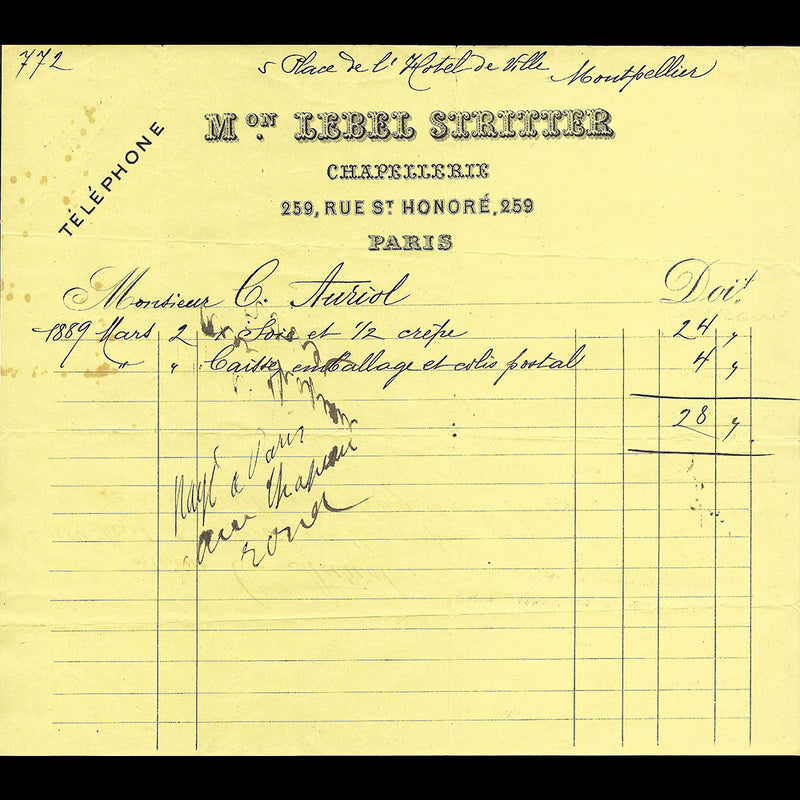 772
5 Place de l'Hotel de Ville Montpellier
TÉLÉPHONE
MON. LEBEL STRITTER
CHAPELLERIE
259, RUE ST HONORÉ, 259
PARIS
Monsieur C. Auriol Doit
1889 Mars 2 1 Soie et 1/2 crêpe 24 "
" " Caisse, emballage et colis postal 4 "
28 "
Payé a Paris
avec Chapeau
rond